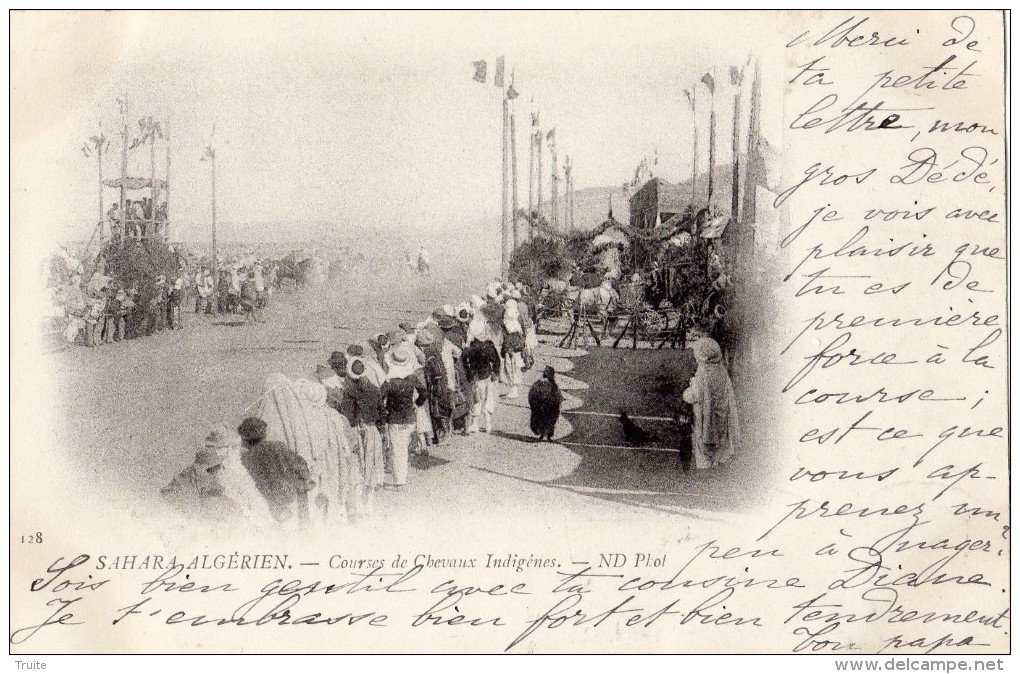 Merci de
ta petite
lettre, mon
gros Dédé,
je vois avec
plaisir que
tu es de
première
force à la
course ;
est ce que
vous ap-
prenez un
peu à nager?
128
SAHARA ALGÉRIEN. — Courses de Chevaux Indigènes. — ND Phot
Sois bien gentil avec ta cousine Diane
Je t'embrasse bien fort et bien tendrement.
Ton papa
Truite
© delcampe.net